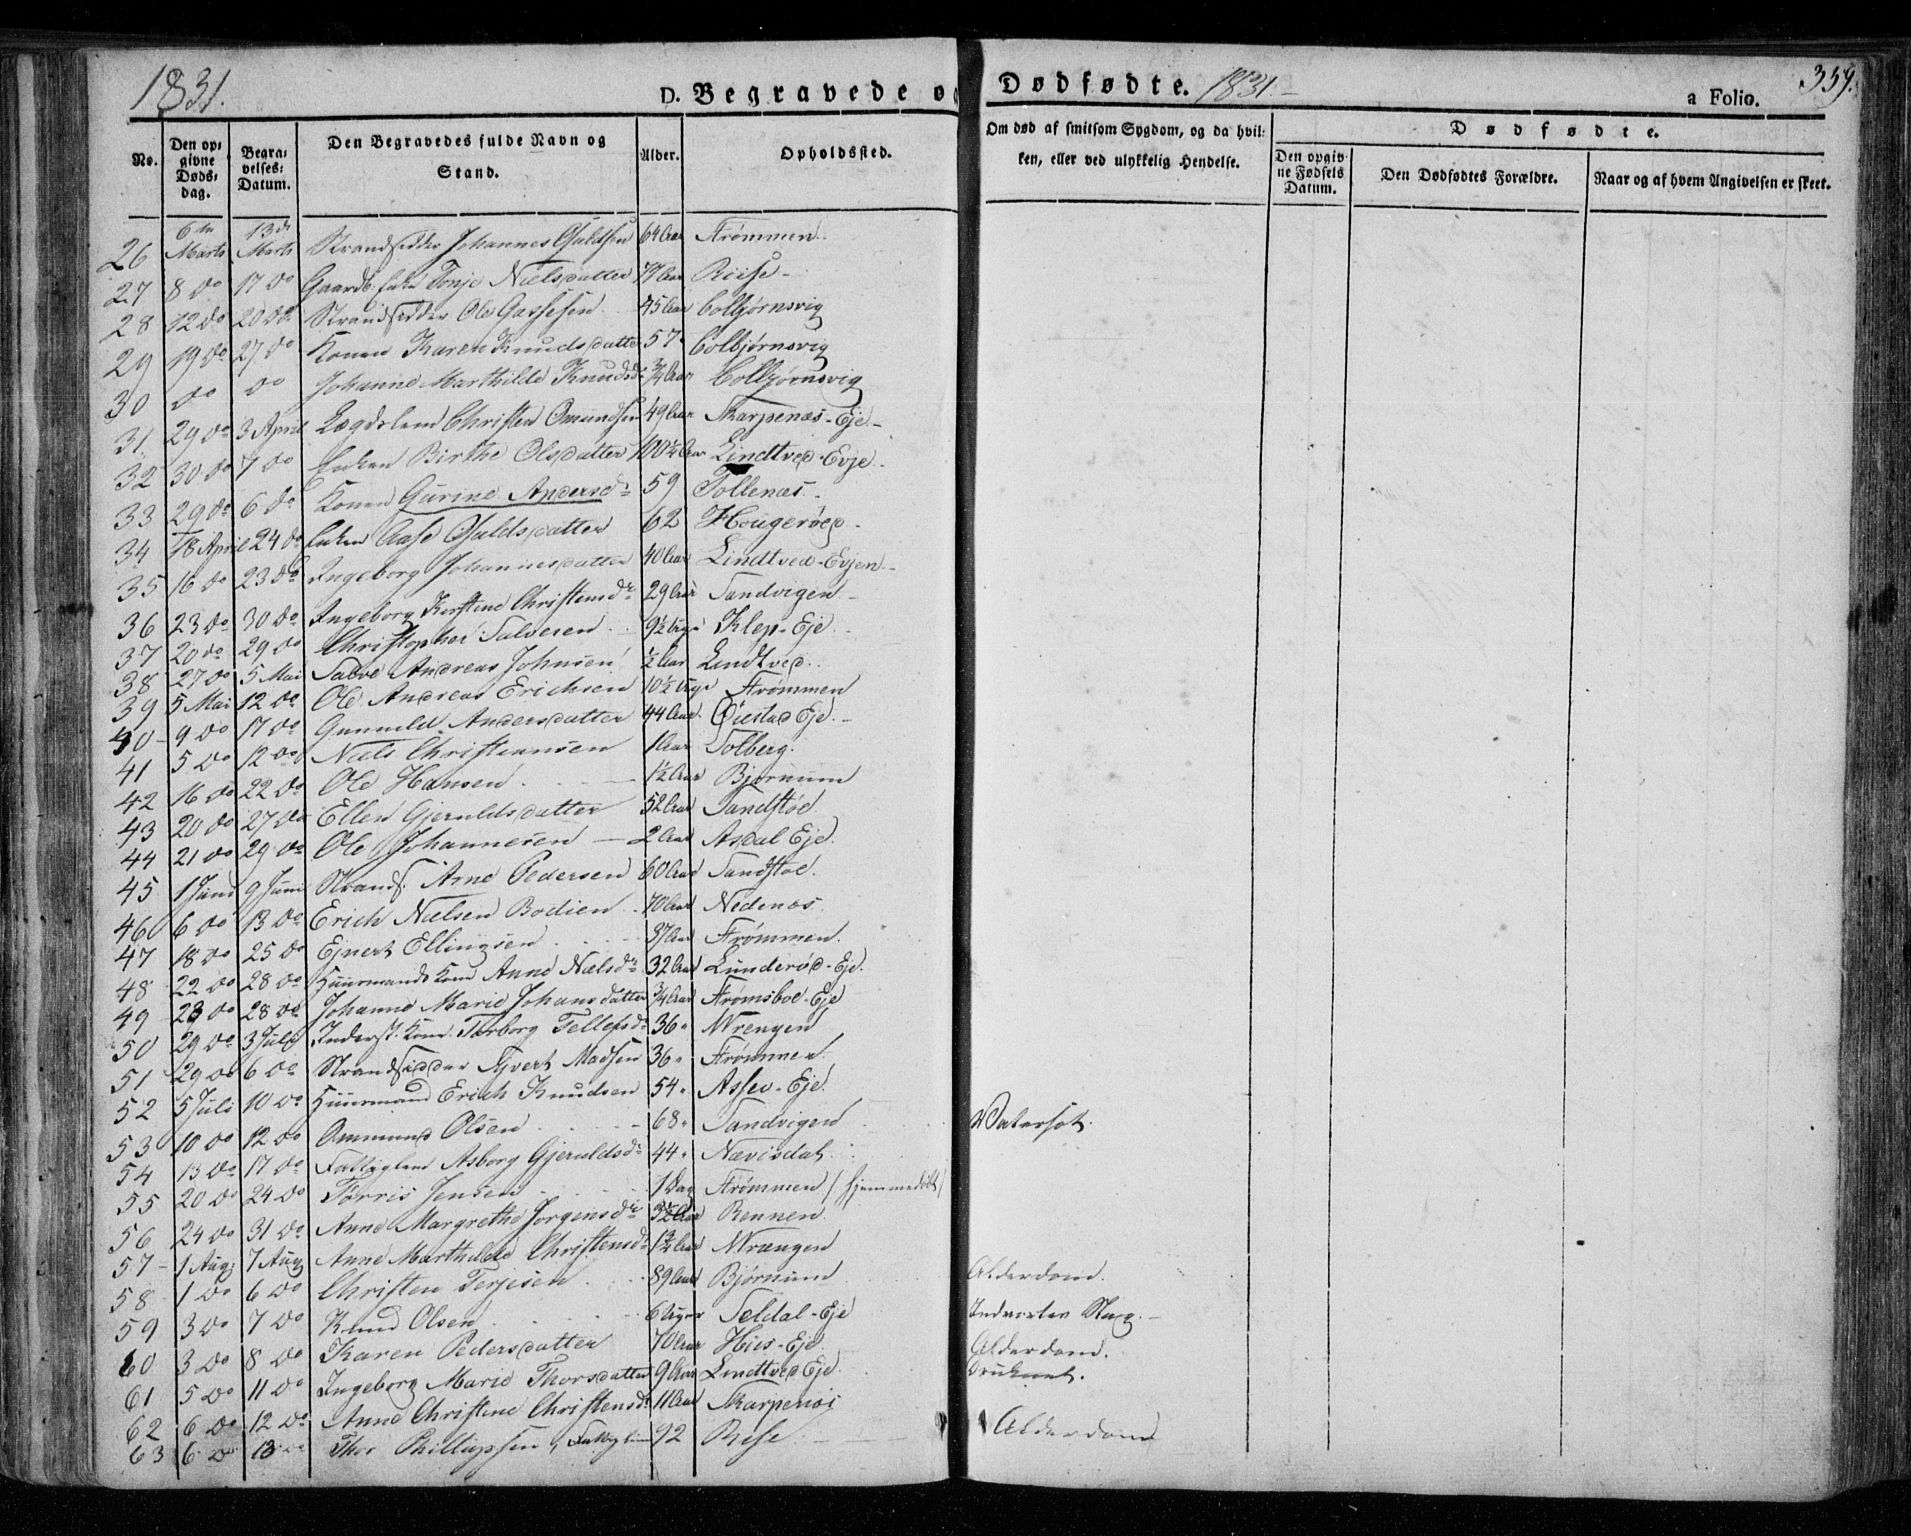 1831.
D. Begravede o
Dødfødte. 1831 -
a Folio.
359.
No.
Den op-
givne
Døds-
dag.
Begra-
velses-
Datum.
Den Begravedes fulde Navn og
Stand.
Alder.
Opholdssted.
Om død af smitsom Sygdom, og da hvil-
ken, eller ved ulykkelig Hendelse.
Dødfødte.
Den opgiv-
ne Fødsels
Datum.
Den Dødfødtes Forældre.
Naar og af hvem Angivelsen er skeet.
26 6te Marts 13de Marts Strandsidder Johannes Osuldsen 64 Aar Strømmen
27 8 do 17 do Gaardb. Enke Tonje Nielsdatter 77 Aar Reise -
28 12 do 20 do Strandsidder Ole Gassesen 45 Aar Colbjørnsvig
29 19 do 27 do Konen Karen Knudsdatter 57 Colbjørnsvig
30 do do Johanne Marthilde Knudsdr 3/4 Aar Colbjørnsvig
31 29 do 3 April Lægdslem Christen Omundsen 49 Aar Skarpenæs-Eje -
32 30 do 7 do Enken Birthe Olsdatter 100 1/2 Aar Lindtved-Evje -
33 29 do 6 do Konen Gurine Andersdr 59 Sollenæs -
34 18 April 24 do Enken Aase Osuldsdatter 62 Hougerøed -
35 16 do 23 do Ingeborg Johannesdatter 40 Aar Lindtved-Evjen -
36 23 do 30 do Ingeborg Kirstine Christensdr 29 Aar Sandvigen -
37 20 do 29 do Christopher Salvesen 9 1/2 Uger Klep-Eje -
38 27 do 5 Mai Salve Andreas Johnsen 1/2 Aar Lindtved
39 5 Mai 12 do Ole Andreas Erichsen 10 1/2 Uge Strømmen
40 9 do 17 do Gunnild Andersdatter 44 Aar Øiestad Eje -
41 5 do 12 do Niels Christiansen 1 Aar Solberg.
42 16 do 22 do Ole Hansen 1 1/2 Aar Bjørnum
43 20 do 27 do Ellen Gjeruldsdatter 52 Aar Sandstøe
44 21 do 29 do Ole Johannesen 2 Aar Asdal Eje.
45 1 Juni 9 Juni Strands. Arne Pedersen 60 Aar Sandstoe.
46 6 do 13 do Erich Nielsen Bodien 70 Aar Nedenæs
47 18 do 25 do Ejvert Ellingsen 37 Aar Strømmen.
48 22 do 28 do Huusmands Kone Anne Nielsdr 32 Aar Lunderød-Eje.
49 23 do 28 do Johanne Marie Johansdatter 3/4 Aar Strømsboe-Eje
50 29 do 3 Juli Inderst. Kone Torborg Tellefsdr 36 " Wrengen
51 29 do 6 do Strandsidder Syvert Madsen 36 " Strømmen
52 5 Juli 10 do Huusmand Erich Knudsen 54 " Assev-Eje.
53 10 do 12 do Ommund Olsen 68 " Sandvigen Watersot.
54 13 do 17 do Fattiglem Asborg Gjeruldsdr 44 " Nævisdal
55 20 do 24 do Torris Jensen 1 Dag Strømmen / hjemmedøbt /
56 24 do 31 do Anne Margrethe Jørgensdr 3 1/2 Aar Rennen
57 1 Aug 7 Aug Anne Marthilde Christensdr 1 3/4 Aar Wrængen
58 1 do 6 do Christen Terjesen 89 Aar Bjørnum Alderdom.
59 3 do 7 do Knud Olsen 6 Uger Seldal-Eje Indvortes Slag. -
60 3 do 8 do Karen Pedersdatter 70 Aar Huus-Eje Alderdom.
61 5 do 11 do Ingeborg Marie Thorsdatter 9 Aar Lindtved Eje Druknet.
62 6 do 12 do Anne Christine Christensdr 11 Aar Skarpenæs
63 6 do 13 do Thor Phillipsen, Fattiglem 92 Reise Alderdom